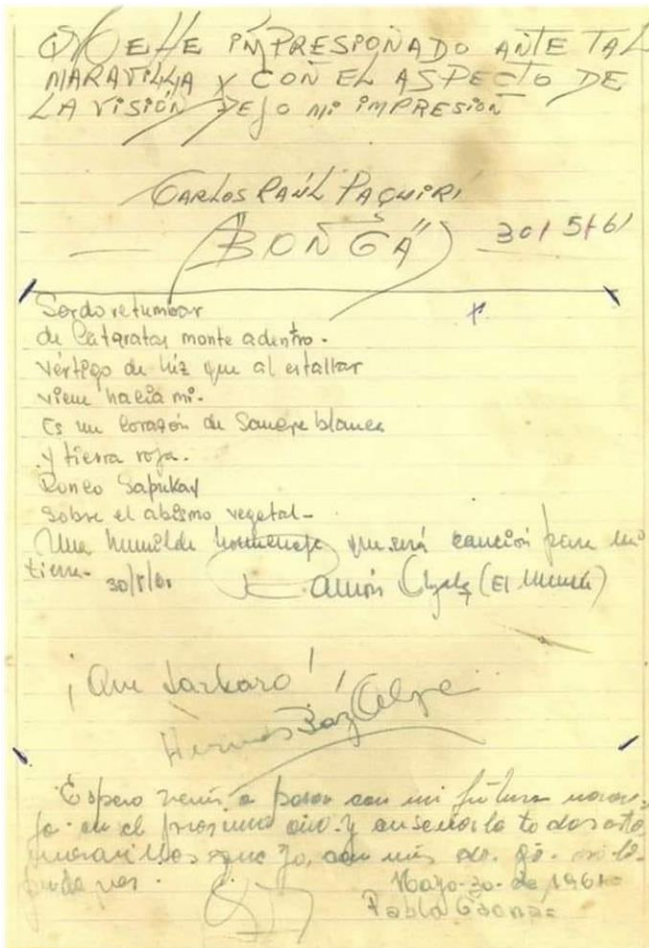 ME HE IMPRESIONADO ANTE TAL
MARAVILLA Y CON EL ASPECTO DE
LA VISIÓN DEJO MI IMPRESIÓN
CARLOS RAÚL PAQUIRI
"BONGA" 30/5/61
Sordo retumbar
de Cataratas monte adentro.
vértigo de luz que al estallar
viene hacia mi.
Es un Corazón de Sangre blanca
y tierra roja.
Ronco Sapukay
Sobre el abismo vegetal-
Una humilde homenaje que será canción para mi
tierra. 30/5/61 Ramón Ayala (El Mensú)
¡Que barbaro!
Espero venir a pasar con mi futura
en el proximo año y enseñarle todas estas
maravillas que yo, con mis
pude ver.
Mayo-30-de 1961
Pablo